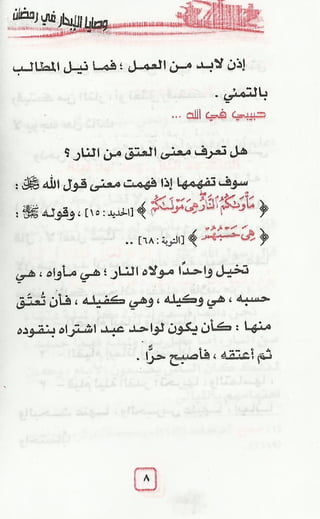 وصايا للإبحار في رمضان
إذن لابد من العمل ؛ فما نيل المطالب
بالتمني .
حبيبي في الله ...
هل تعرف معنى العتق من النار ؟
سوف تفهمها إذا فهمت معنى قول الله ﷻ :
﴿ مَأْوَىٰكُمُ ٱلنَّارُ ۖ هِىَ مَوْلَىٰكُمْ ﴾ [الحديد: ١٥] ، وقوله ﷻ :
﴿ هِىَ حَسْبُهُمْ ﴾ [التوبة: ٦٨] ..
تخيل واحدًا مولاه النار ؛ هي مأواه ، هي
حسبه ، هي وكيله ، وهي كفيله ، فأن تُعتَق
منها : كأن يكون لواحد عبد اشتراه بنقوده
ثم أعتقه ، فأصبح حرًّا .
٨